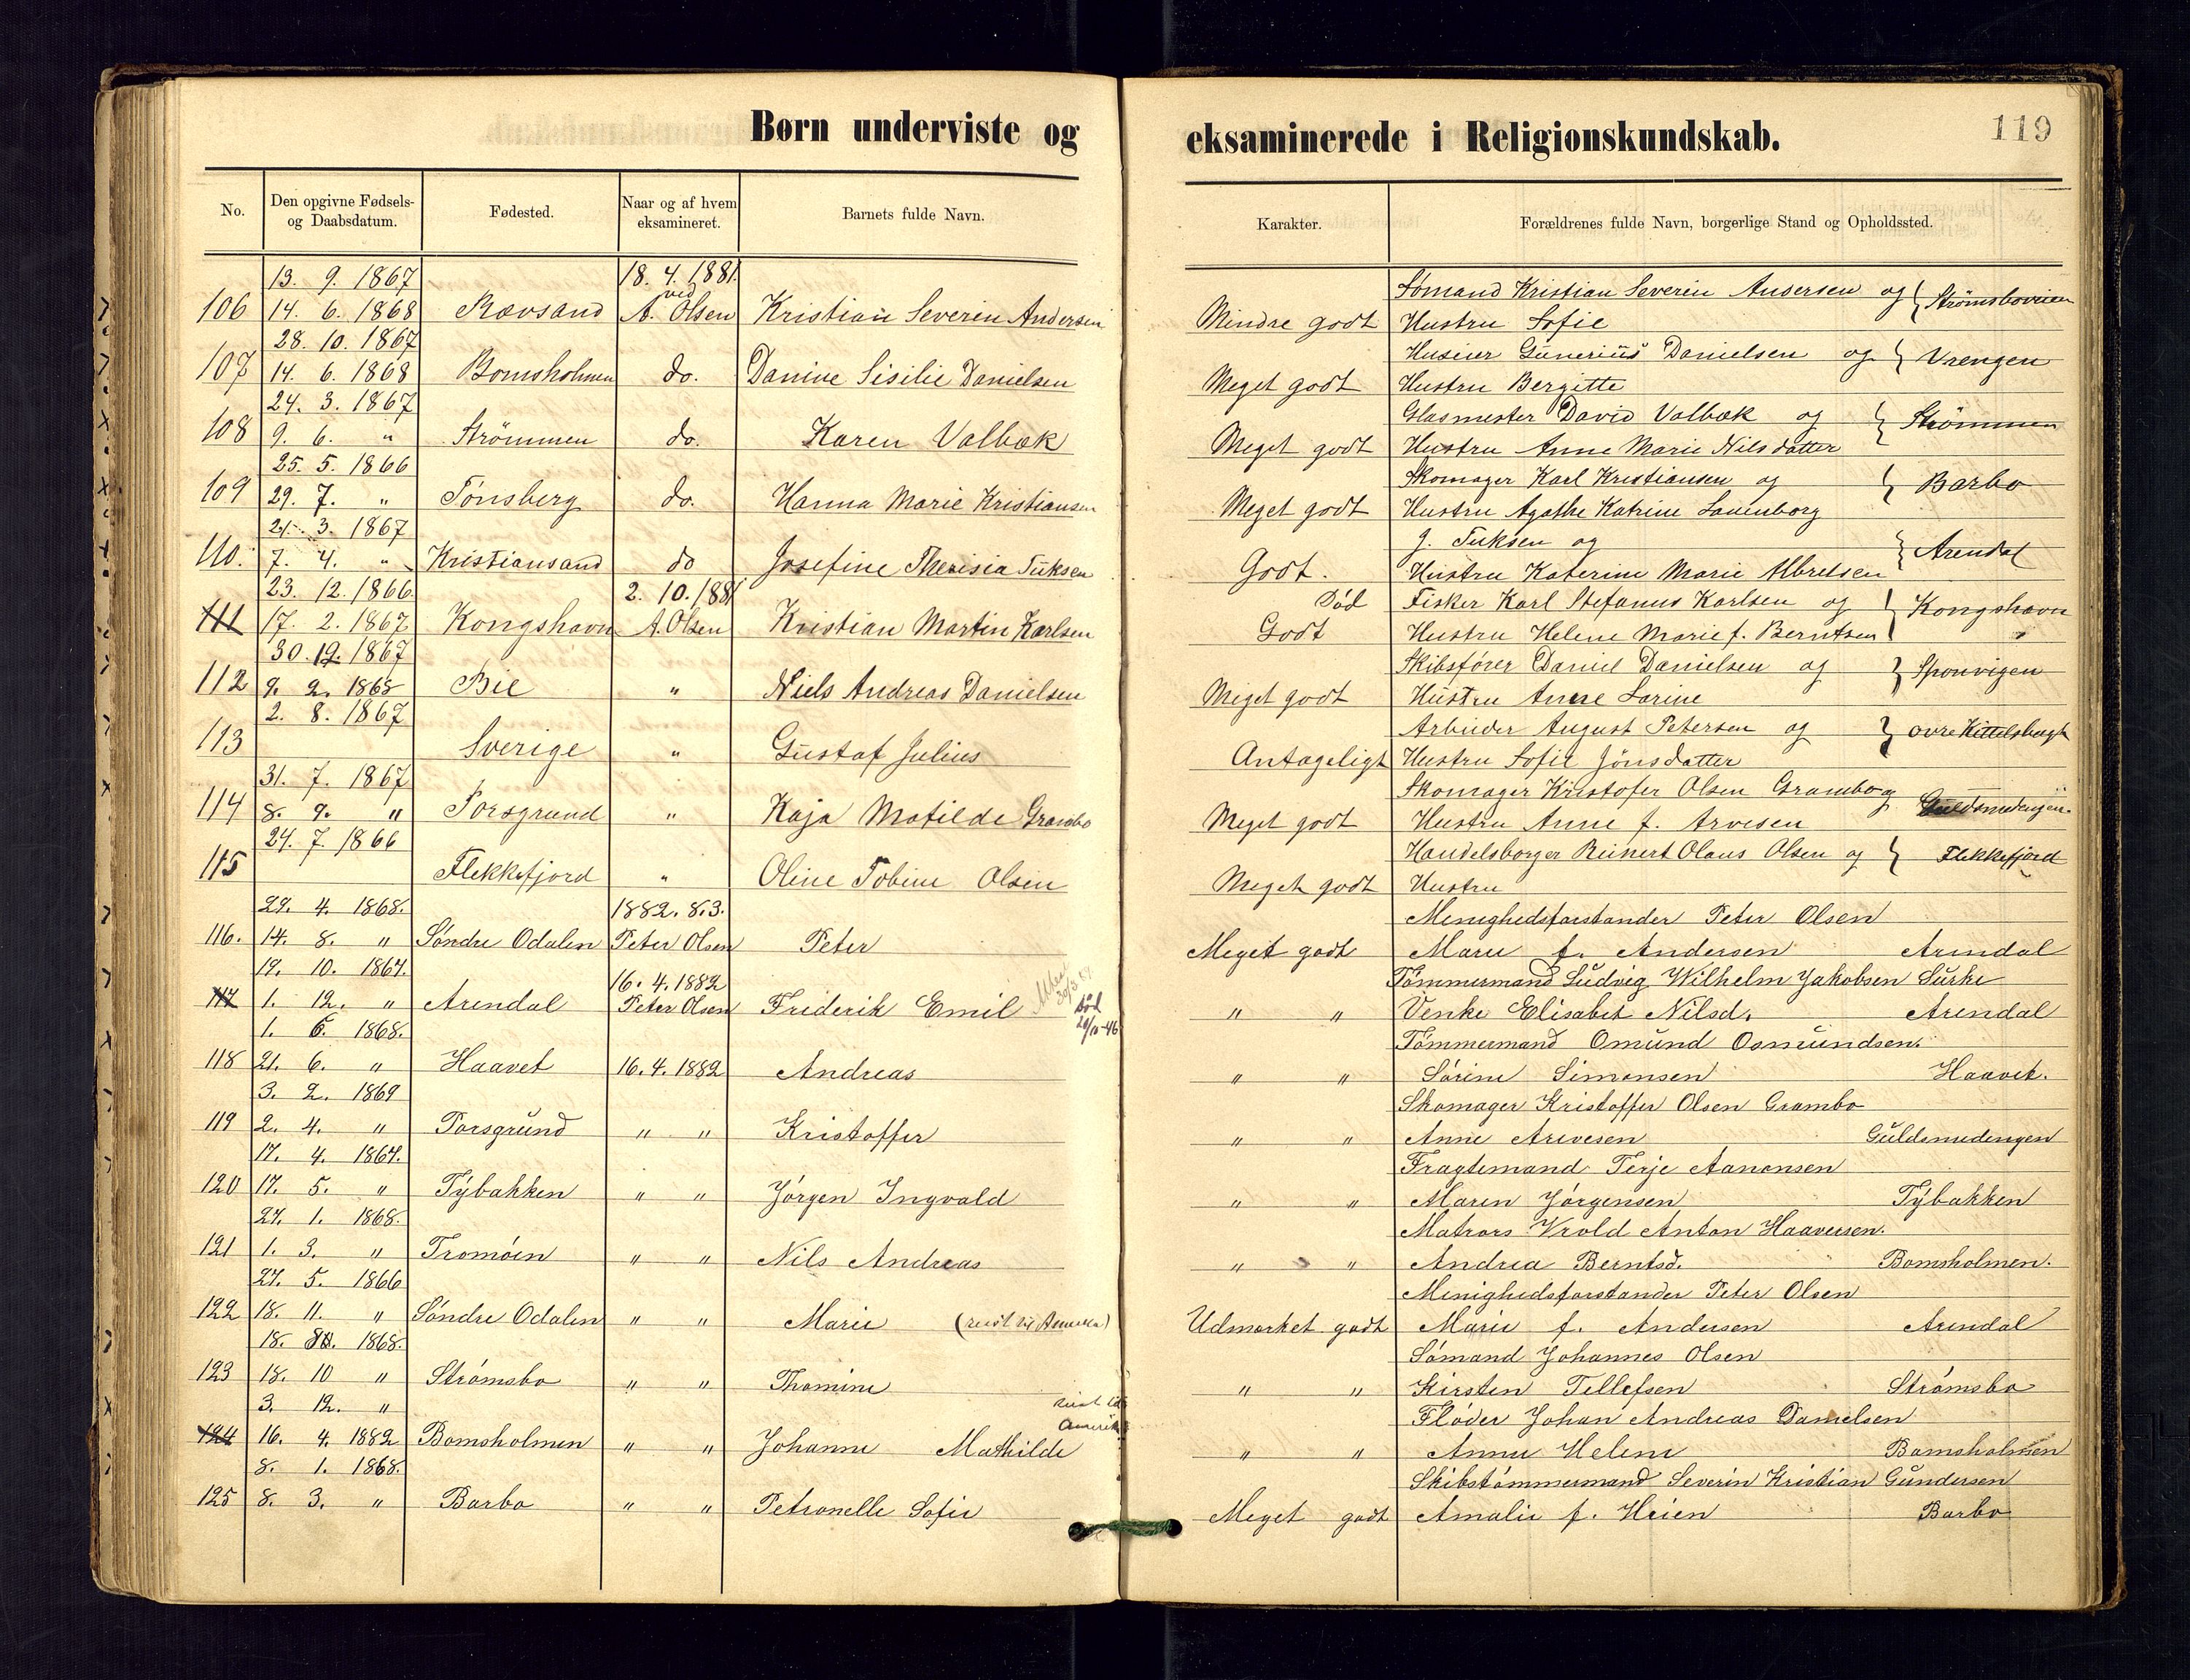 Børn underviste og
eksaminerede i Religionskundskab.
119
No.
Den opgivne Fødsels- og Daabsdatum.
Fødested.
Naar og af hvem eksamineret.
Barnets fulde Navn.
Karakter.
Forældrenes fulde Navn, borgerlige Stand og Opholdssted.
13. 9. 1867 18. 4. 1881. Sømand Kristian Severin Andersen og } Strömsboveien
106 14. 6. 1868 Rævsand ved A. Olsen Kristian Severin Andersen Mindre godt Hustru Sofie
28. 10. 1867 Huseier Gunerius Danielsen og } Vrengen
107 14. 6. 1868 Bomsholmen do. Danine Sisilie Danielsen Meget godt Hustru Bergitte
24. 3. 1867 Glasmester David Valbæk og } Strömmen
108 9. 6. " Strömmen do. Karen Valbæk Meget godt Hustru Anne Marie Nilsdatter
25. 5. 1866 Skomager Karl Kristiansen og } Barbo
109 29. 7. " Tönsberg do. Hanna Marie Kristiansen Meget godt Hustru Agathe Katrine
21. 3. 1867 J. Tuksen og } Arendal
110. 7. 4. " Kristiansand do Josefine Theresia Tuksen Godt. Hustru Katerine Marie Albretsen
23. 12. 1866. 2. 10. 1881 Død Fisker Karl Stefanus Karlsen og } Kongshavn
111 17. 2. 1867 Kongshavn A. Olsen Kristian Martin Karlsen Godt Hustru Helene Marie f. Berntsen
30. 12. 1867 Skibsfører Daniel Danielsen og } Sponvigen
112 9. 2. 1868 Bie " Niels Andreas Danielsen Meget godt Hustru Anne Larine
2. 8. 1867 Arbeider August Petersen og }
113 Sverige " Gustaf Julius Antageligt Hustru Sofie Jönsdatter
31. 7. 1867 Skomager Kristofer Olsen Grambo og
114 8. 9. " Porsgrund " Kaja Matilde Grambo Meget godt Hustru Anne f. Arvesen Guldsmedengen.
24. 7. 1866 Handelsborger Reinert Olaus Olsen og } Flekkefjord
115 Flekkefjord " Oline Tobine Olsen Meget godt Hustru
29. 4. 1868. 1882. 8. 3. Menighedsforstander Peter Olsen
116. 14. 8. " Söndre Odalen Peter Olsen Peter Meget godt Marie f. Andersen Arendal
19. 10. 1867. 16. 4. 1882 Tömmermand Ludvig Wilhelm Jakobsen Surke
117 1. 12. " Arendal Peter Olsen Friderik Emil Død " " Venke Elisabet Nilsd. Arendal
1. 5. 1868. Tömmermand Omund Osmundsen.
118 21. 6. " Haavet 16. 4. 1882 Andreas " " Sörine Simonsen Haavet.
3. 2. 1869 Skomager Kristoffer Olsen Grambo
119 2. 4. " Porsgrund " " Kristoffer " " Anne Arevesen Guldsmedengen
17. 4. 1867. Fragtemand Terje Aanonsen
120 17. 5. " Tybakken " " Jörgen Ingvald " " Maren Jörgensen Tybakken
27. 1. 1868. Matros Vrold Anton Haaversen.
121 1. 3. " Tromöen " " Nils Andreas " " Andrea Berntsd. Bomsholmen.
27. 5. 1866 Menighedsforstander Peter Olsen
122 18. 11. " Söndre Odalen " " Marie (reist til Amerika) Udmærket godt Marie f. Andersen Arendal
18. 1868. Sömand Johannes Olsen
123 18. 10 " Strömsbo " " Thomine " " Kirsten Tellefsen Strömsbo
3. 12. " reist til Amerika Fløder Johan Andreas Danielsen
124 16. 4. 1882 Bomsholmen " " Johanne Mathilde " " Anne Helene Bomsholmen
8. 1. 1868. Skibstömmermand Severin Kristian Gundersen
125 8. 3. " Barbo " " Petronelle Sofie Meget godt Amalie f. Heien Barbo